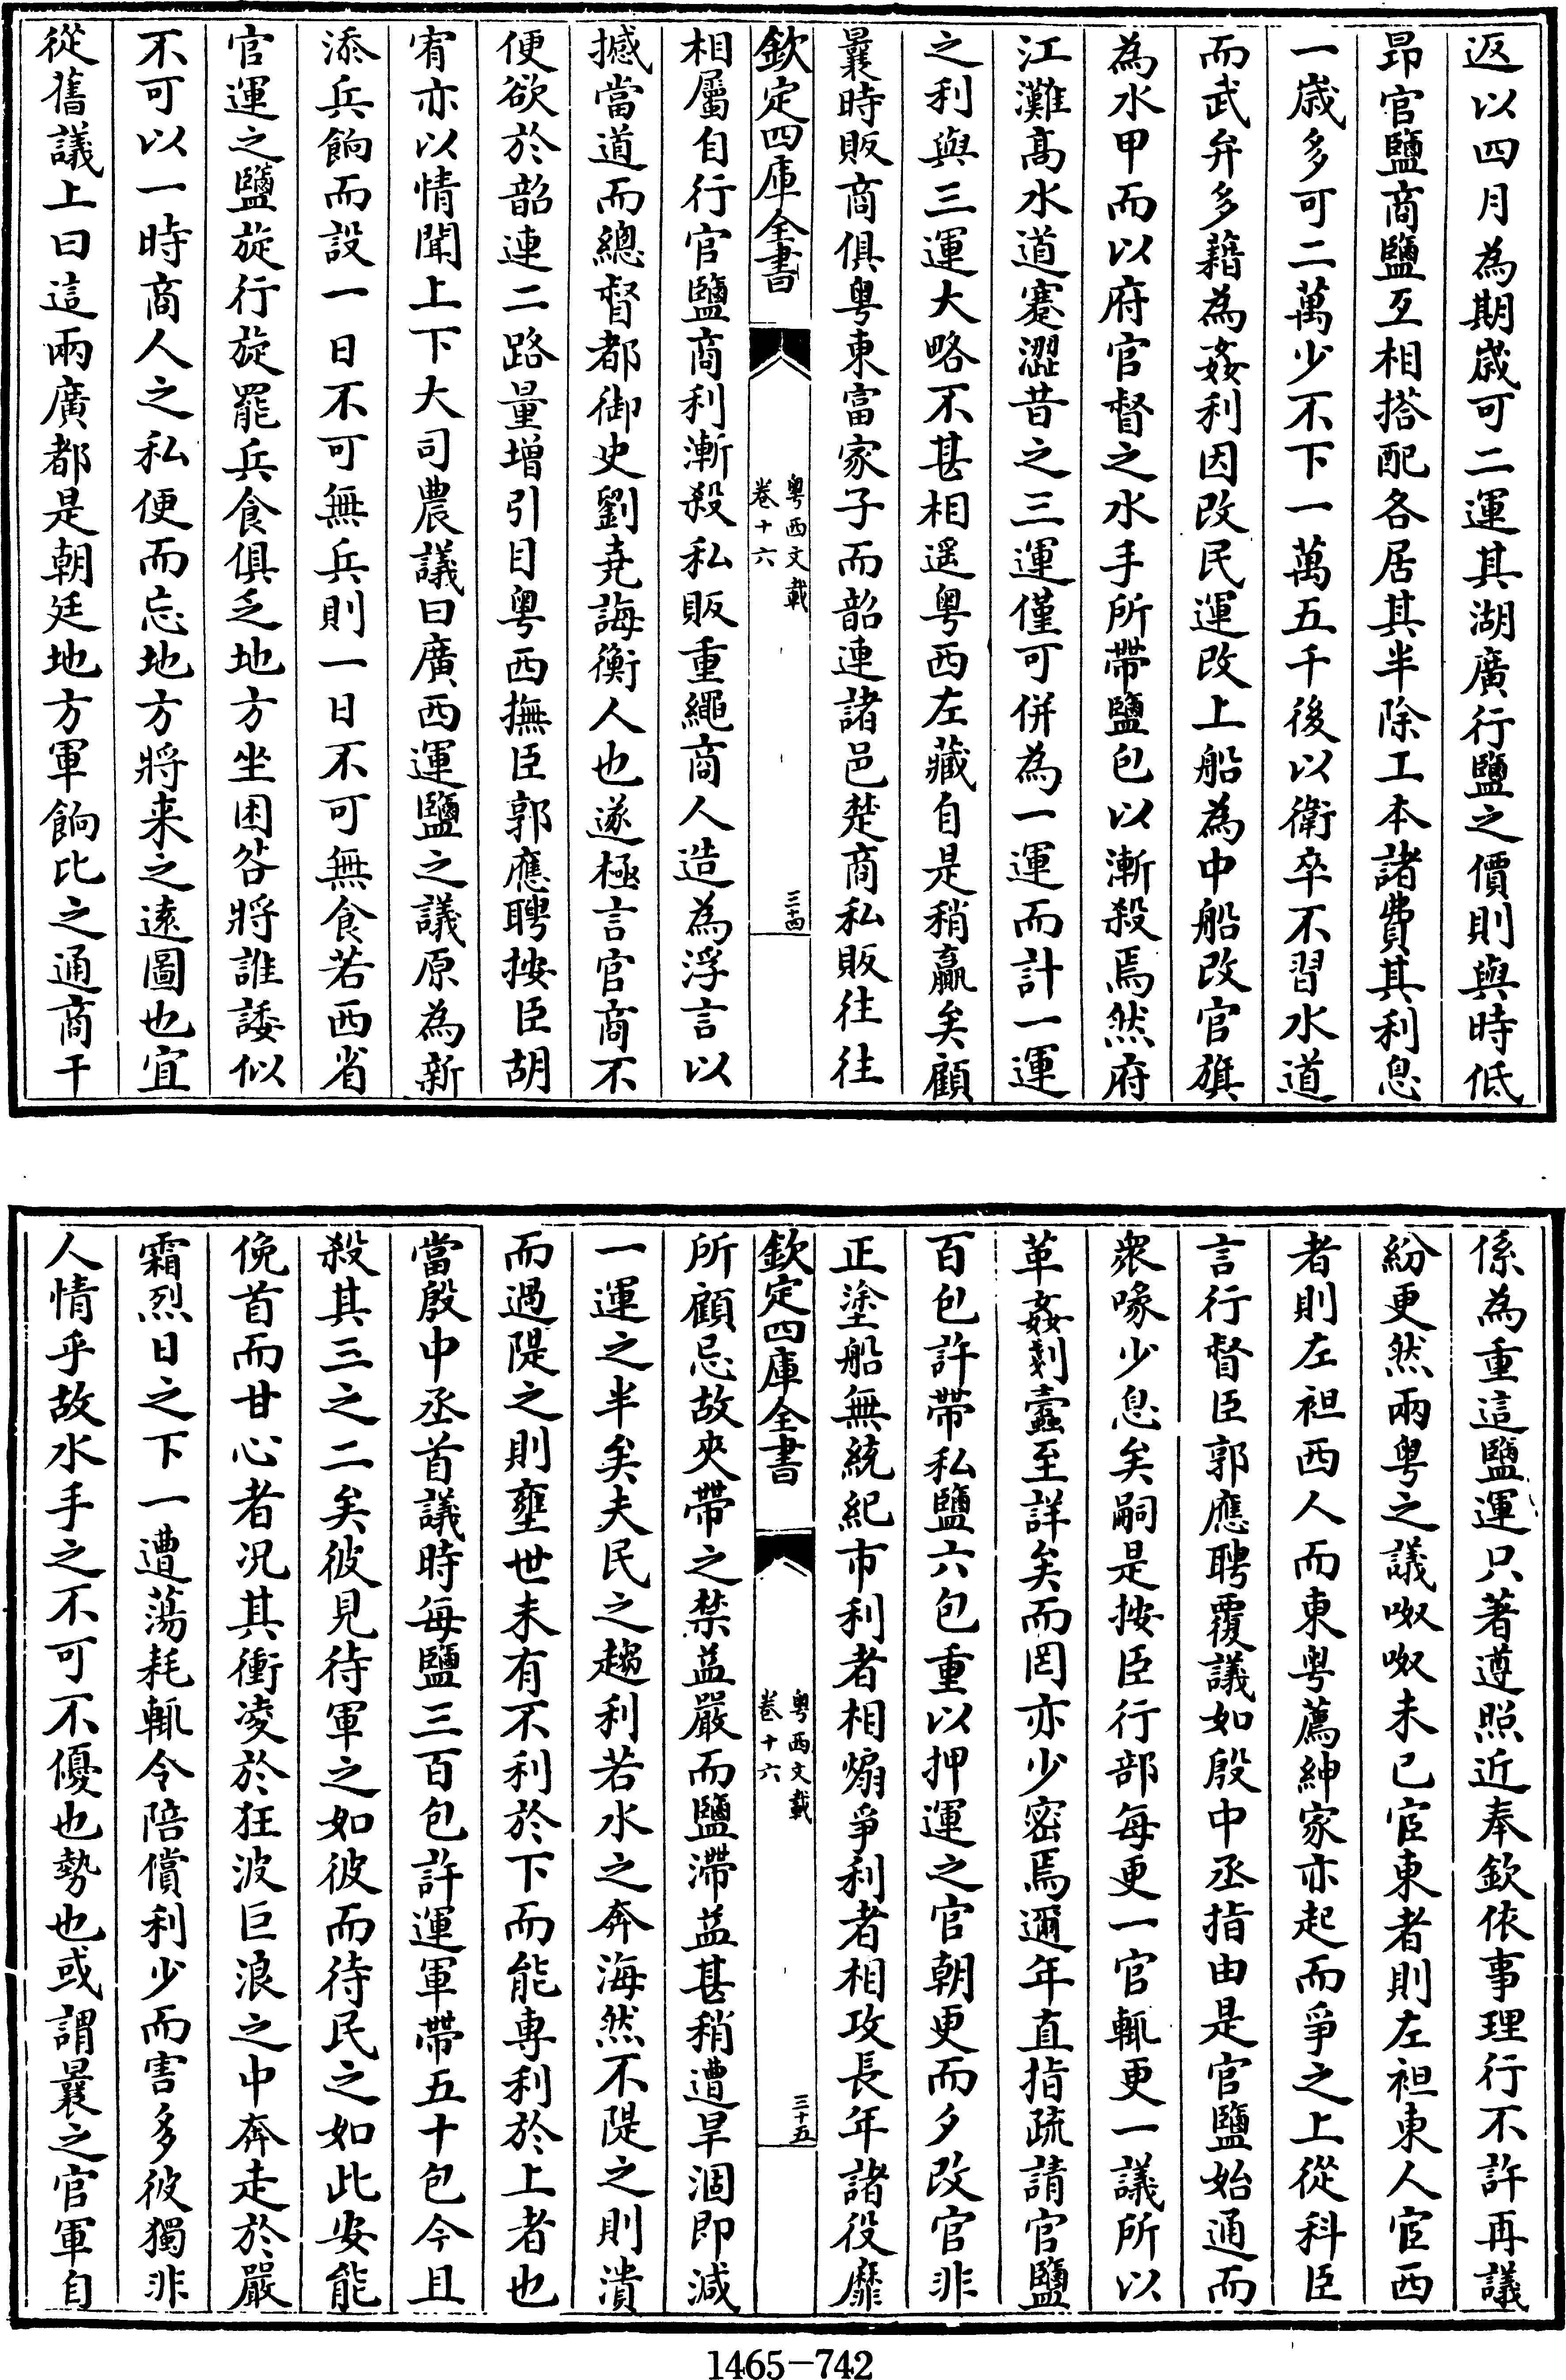 返以四月為期歳可二運其湖廣行鹽之價則與時低
昂官鹽商鹽互相搭配各居其半除工本諸費其利息
一歳多可二萬少不下一萬五千後以衛卒不習水道
而武弁多藉為姦利因改民運改上船為中船改官旗
為水甲而以府官督之水手所帶鹽包以漸殺焉然府
江灘髙水道蹇澀昔之三運僅可併為一運而計一運
之利與三運大略不甚相遥粤西左藏自是稍贏矣顧
曩時販商俱粤東富家子而韶連諸邑楚商私販往往
欽定四庫全書
粤西文載
卷十六
三十四
相屬自行官鹽商利漸殺私販重繩商人造為浮言以
撼當道而總督都御史劉堯誨衡人也遂極言官商不
便欲於韶連二路量增引目粤西撫臣郭應聘按臣胡
宥亦以情聞上下大司農議曰廣西運鹽之議原為新
添兵餉而設一日不可無兵則一日不可無食若西省
官運之鹽旋行旋罷兵食俱乏地方坐困咎將誰諉似
不可以一時商人之私便而忘地方將来之逺圖也宜
從舊議上曰這兩廣都是朝廷地方軍餉比之通商干
係為重這鹽運只著遵照近奉欽依事理行不許再議
紛更然兩粤之議呶呶未已宦東者則左袒東人宦西
者則左袒西人而東粤薦紳家亦起而爭之上從科臣
言行督臣郭應聘覆議如殷中丞指由是官鹽始通而
衆喙少息矣嗣是按臣行部每更一官輒更一議所以
革姦剗蠧至詳矣而罔亦少密焉邇年直指疏請官鹽
百包許帶私鹽六包重以押運之官朝更而夕改官非
正塗船無統紀市利者相煽爭利者相攻長年諸役靡
欽定四庫全書
粤西文載
卷十六
三十五
所顧忌故夾帶之禁益嚴而鹽滯益甚稍遭旱涸即減
一運之半矣夫民之趨利若水之奔海然不隄之則潰
而過隄之則壅世未有不利於下而能專利於上者也
當殷中丞首議時每鹽三百包許運軍帶五十包今且
殺其三之二矣彼見待軍之如彼而待民之如此安能
俛首而甘心者况其衝凌於狂波巨浪之中奔走於嚴
霜烈日之下一遭蕩耗輒令陪償利少而害多彼獨非
人情乎故水手之不可不優也勢也或謂曩之官軍自
1465-742